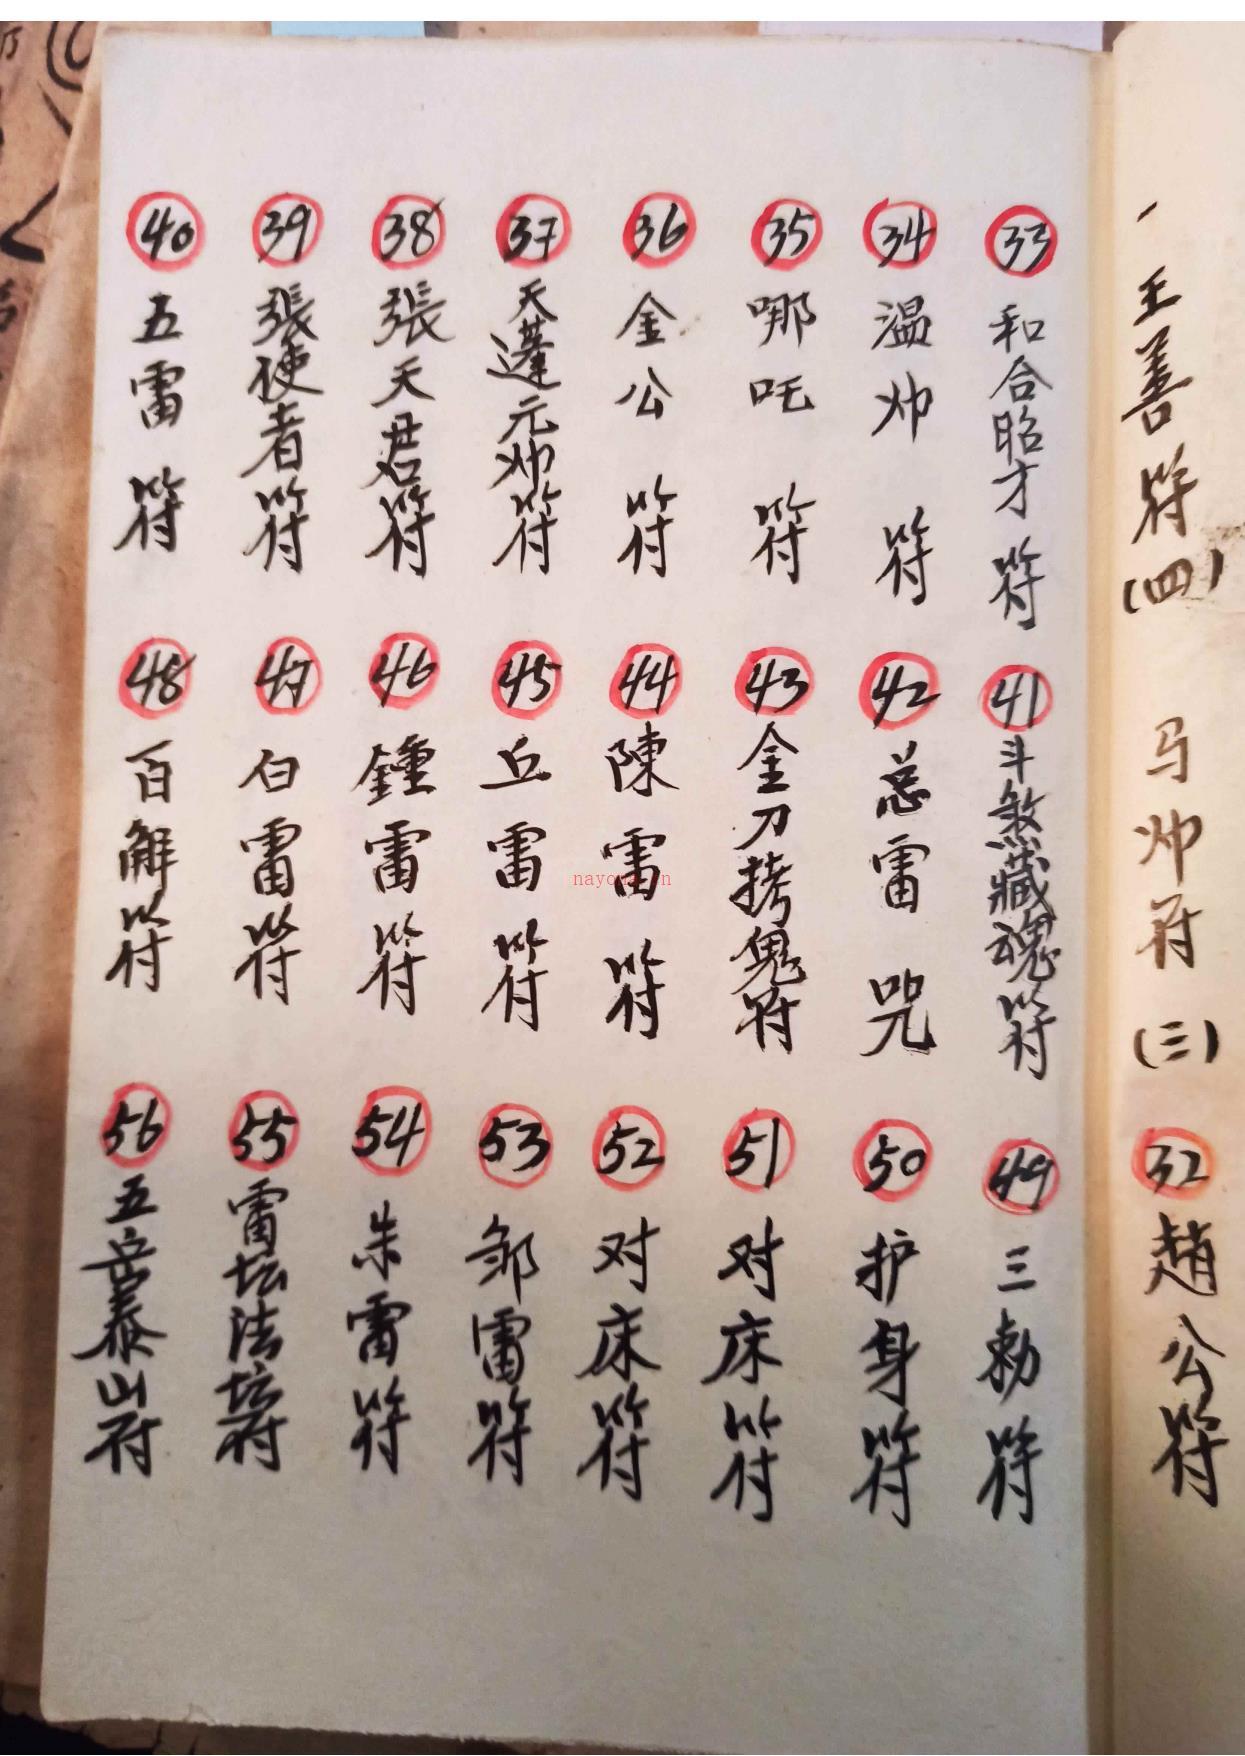 王善符(四)
马帅符(三)
32 趙公符
33 和合昭才符
34 温帅符
35 哪吒符
36 金公符
37 天蓬元帅符
38 張天君符
39 張使者符
40 五雷符
41 斗煞藏魂符
42 总雷咒
43 金刀拷鬼符
44 陳雷符
45 丘雷符
46 鍾雷符
47 白雷符
48 百解符
49 三勅符
50 护身符
51 对床符
52 对床符
53 邹雷符
54 朱雷符
55 雷坛法坛符
56 五岳泰山符